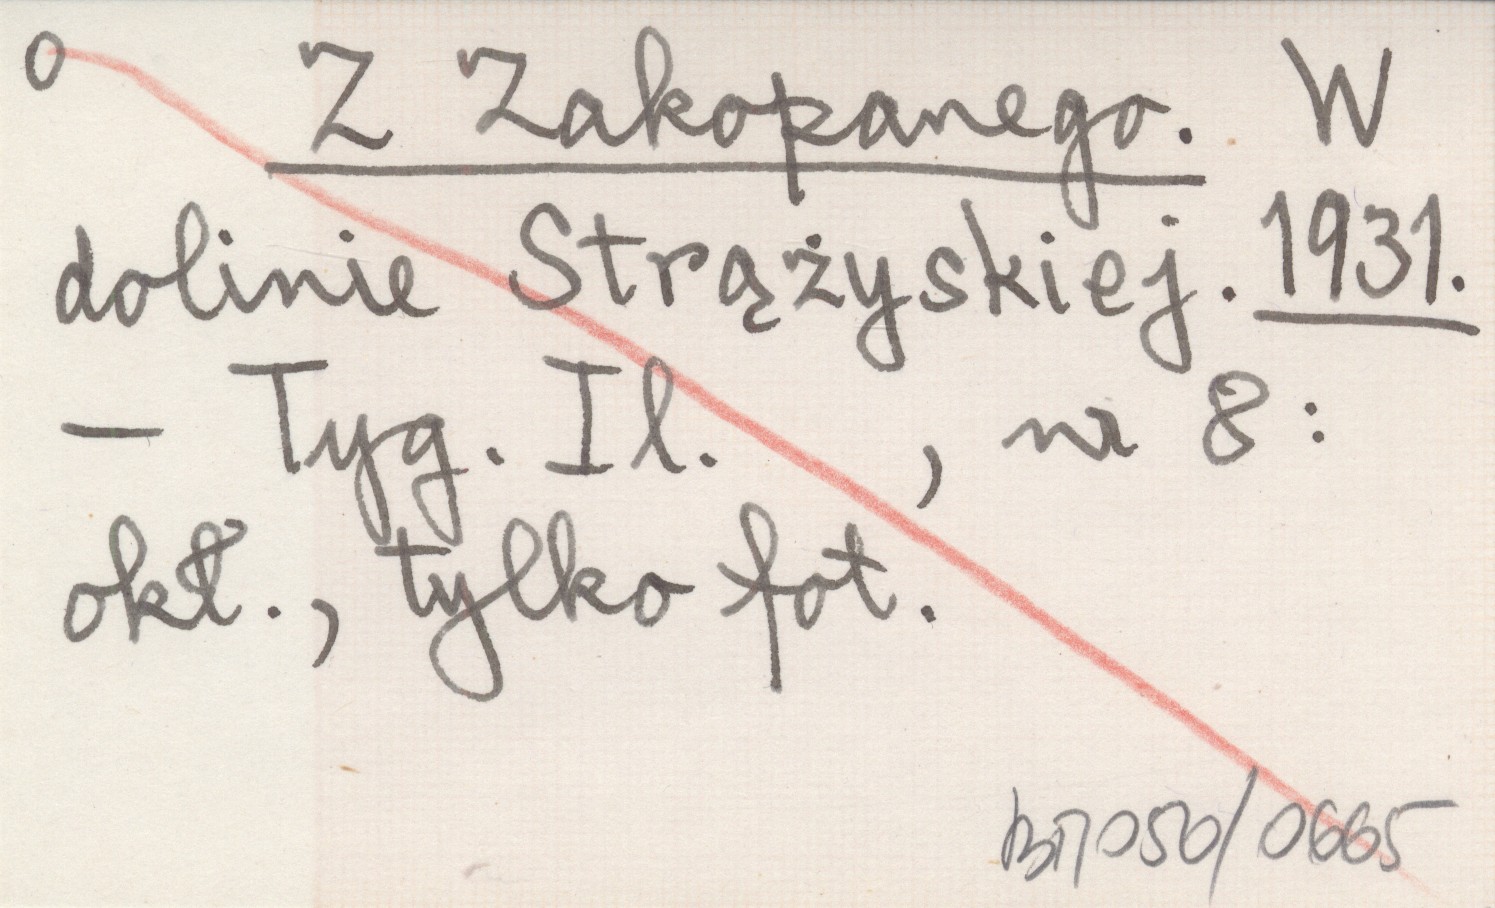 o Z Zakopanego. W
dolinie Strążyskiej. 1931.
— Tyg. Il. , nr 8:
okł., tylko fot.
050/0665